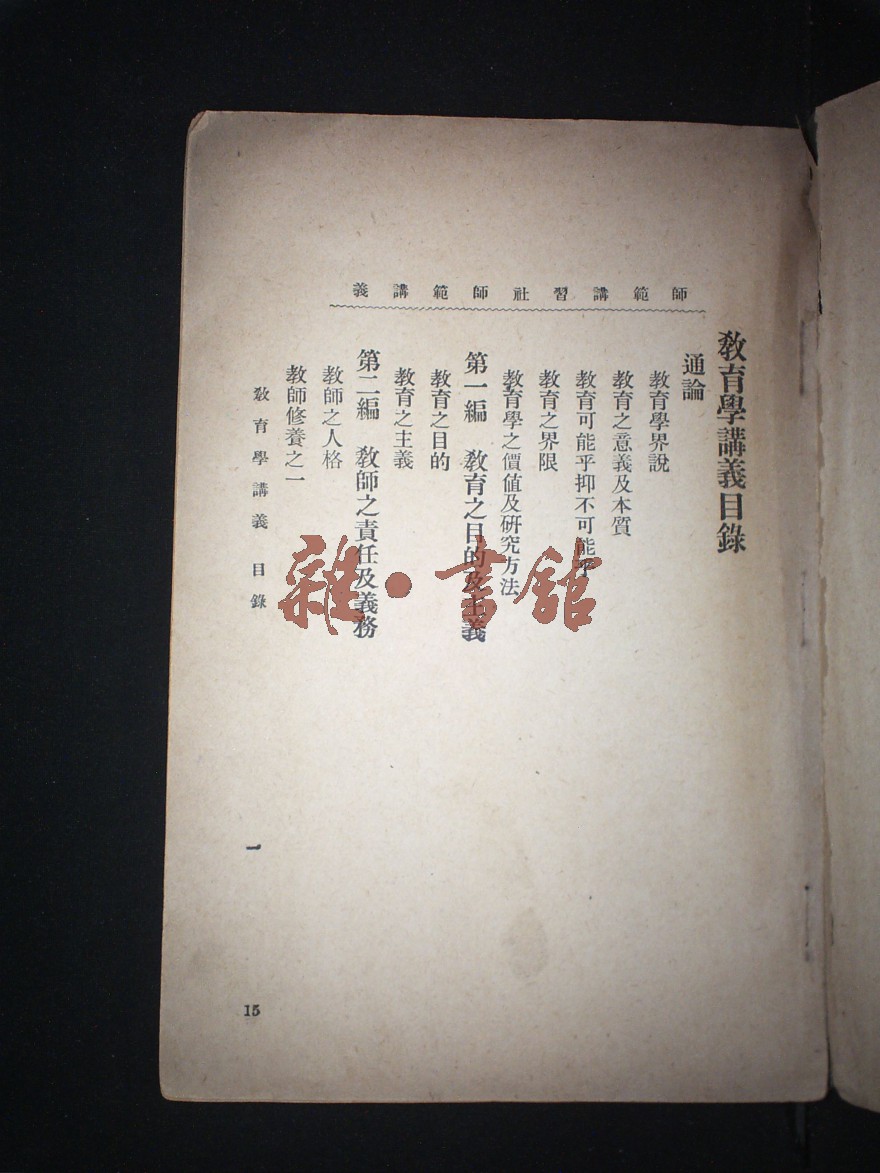 師範講習社師範講義
敎育學講義目錄
通論
敎育學界說
敎育之意義及本質
敎育可能乎抑不可能乎
敎育之界限
敎育學之價値及研究方法
第一編　敎育之目的及主義
敎育之目的
敎育之主義
第二編　敎師之責任及義務
敎師之人格
敎師修養之一
敎育學講義　目錄
一
15
雜·書舘